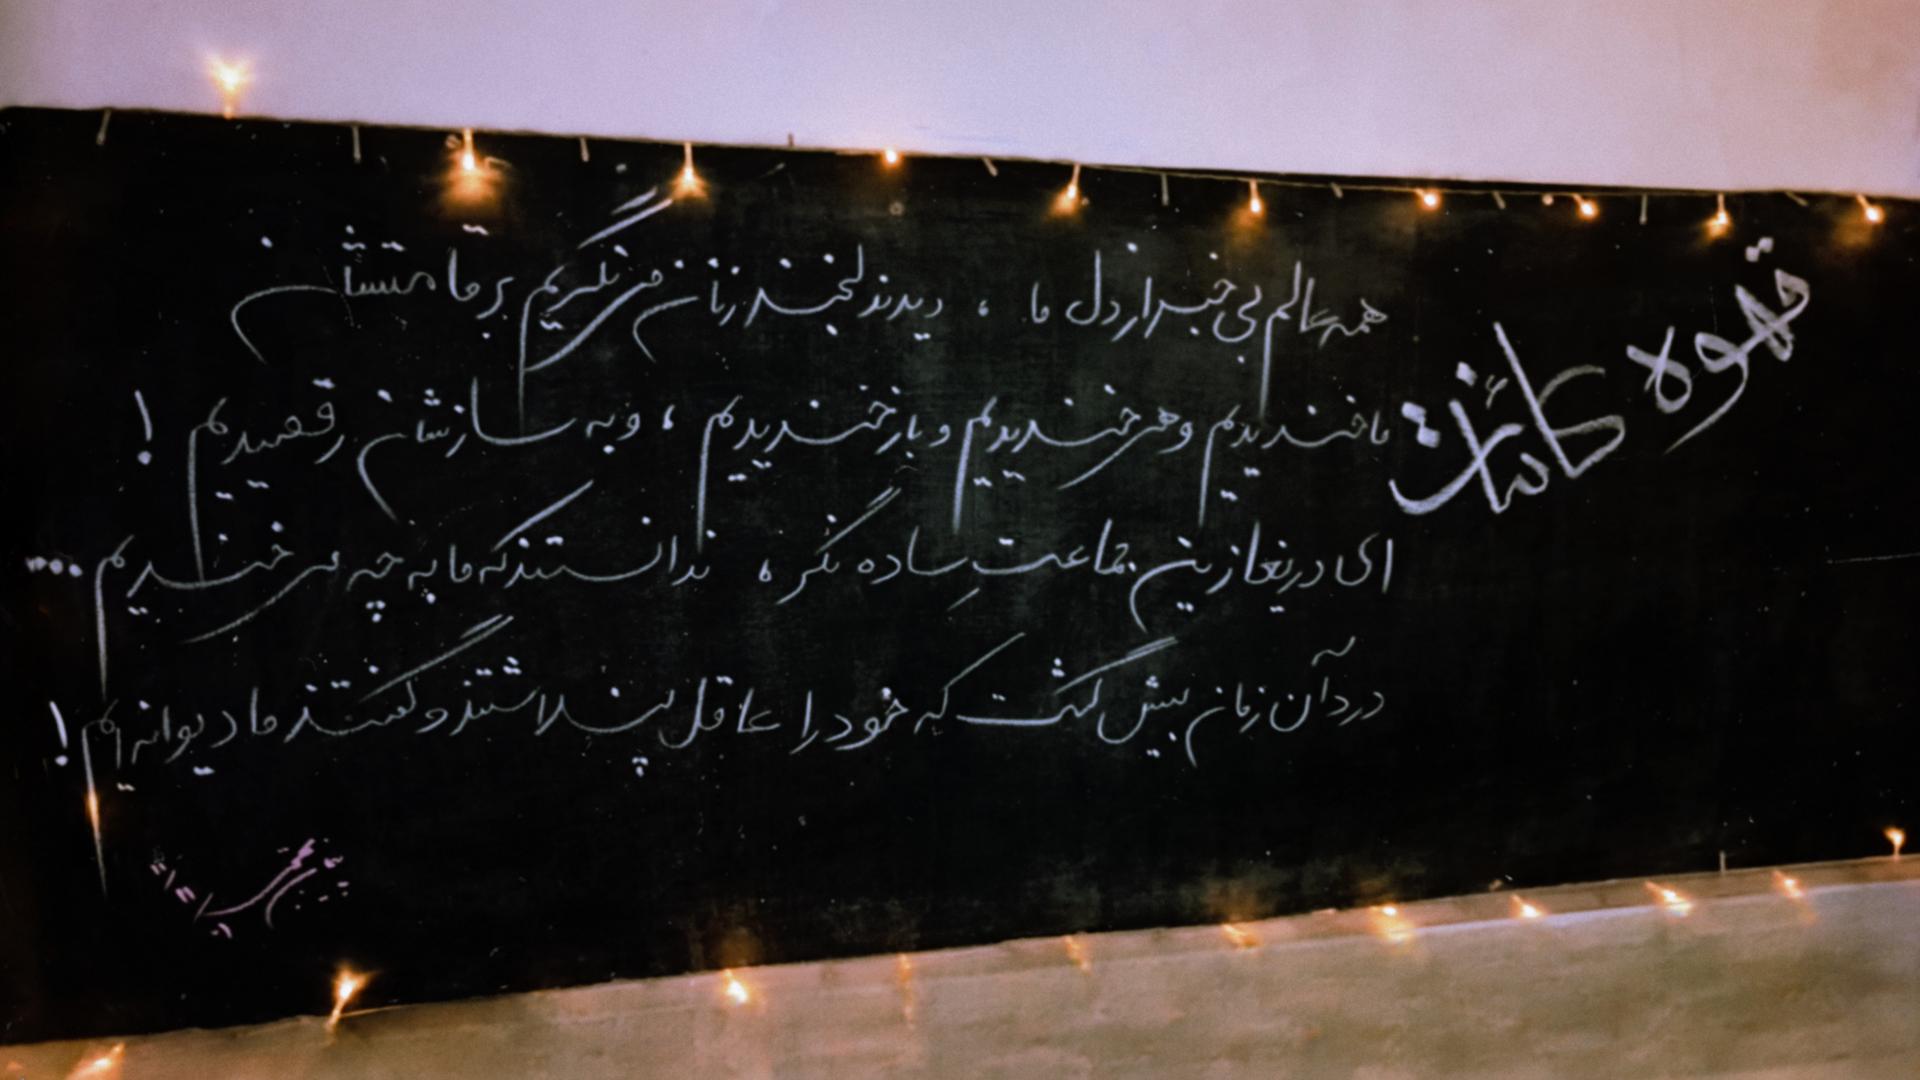 قهوه کائنات
همه عالم بی خبر از دل ما ، دیدند لبخند زنان می نگریم بر قامتشان
ما خندیدیم و هی خندیدیم و باز خندیدیم ، و به سازشان رقصیدیم !
ای دریغا ازین جماعتِ ساده نگر ، ندانستند که ما به چه می خندیدیم ...
درد آن زمان بیش گشت که خود را عاقل پنداشتند و گفتند ما دیوانه ایم !